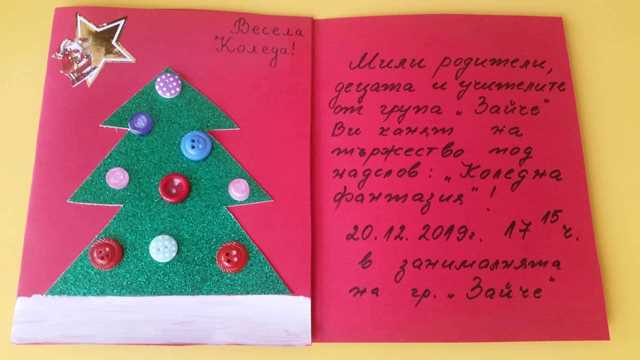 Весела
Коледа!
Мили родители,
децата и учителите
от група „Зайче"
Ви канят на
тържество под
надслов: „Коледна
фантазия"!
20.12.2019г. 17 15 ч.
в занималнята
на гр. „Зайче"